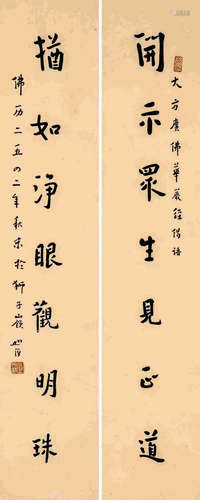 大方廣佛華嚴經偈語
開示眾生見正道
猶如淨眼觀明珠
佛历二五四二年秋末於獅子嶺